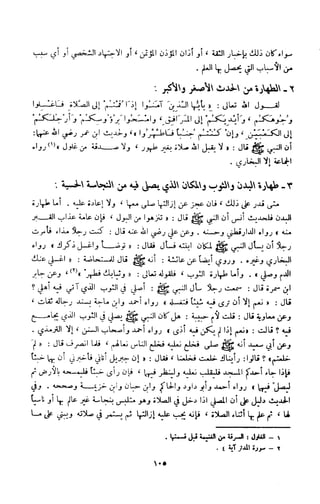 سواء كان ذلك بإخبار الثقة ، أو أذان المؤذن المؤتمن ، أو الاجتهاد الشخصي أو أي سبب
من الأسباب التي يحصل بها العلم .
٢ - الطهارة من الحدث الأصغر والأكبر :
لقول الله تعالى : « يأيها الذين آمنوا إذا قمتم إلى الصلاة فاغسلوا
وجوهكم ، وأيديكم إلى المرافق ، وامسحوا برءوسكم ، وأرجلكم
إلى الكعبين ، وإن كنتم جنبا فاطهروا » ، ولحديث ابن عمر رضي الله عنهما :
أن النبي ﷺ قال : « لا يقبل الله صلاة بغير طهور ، ولا صدقة من غلول »(١) رواه
الجماعة إلا البخاري .
٣ - طهارة البدن والثوب والمكان الذي يصلى فيه من النجاسة الحسية :
متى قدر على ذلك ، فإن عجز عن إزالتها صلى معها ، ولا إعادة عليه . أما طهارة
البدن فلحديث أنس أن النبي ﷺ قال : « تنزهوا من البول ، فإن عامة عذاب القبر
منه » رواه الدارقطني وحسنه . وعن علي رضي الله عنه قال : كنت رجلا مذاء فأمرت
رجلا أن يسأل النبي ﷺ لمكان ابنته فسأل فقال : « توضأ واغسل ذكرك » رواه
البخاري وغيره . وروي أيضا عن عائشة : أنه ﷺ قال للمستحاضة : « اغسلي عنك
الدم وصلي » . وأما طهارة الثوب ، فلقوله تعالى : « وثيابك فطهر »(٢) ، وعن جابر
ابن سمرة قال : سمعت رجلا سأل النبي ﷺ : أصلي في الثوب الذي آتي فيه أهلي ؟
قال : « نعم إلا أن ترى فيه شيئا فتغسله » رواه أحمد وابن ماجة بسند رجاله ثقات ،
وعن معاوية قال : قلت لأم حبيبة : هل كان النبي ﷺ يصلي في الثوب الذي يجامع
فيه ؟ قالت : « نعم إذا لم يكن فيه أذى » رواه أحمد وأصحاب السنن ، إلا الترمذي .
وعن أبي سعيد أنه ﷺ صلى فخلع نعليه فخلع الناس نعالهم ، فلما انصرف قال : « لم
خلعتم » ؟ قالوا : رأيناك خلعت فخلعنا ، فقال : « إن جبريل أتاني فأخبرني أن بهما خبثا
فإذا جاء أحدكم المسجد فليقلب نعليه ولينظر فيهما ، فإن رأى خبثا فليمسحه بالأرض ثم
ليصل فيهما » رواه أحمد وأبو داود والحاكم وابن حبان وابن خزيمة وصححه . وفي
الحديث دليل على أن المصلي إذا دخل في الصلاة وهو متلبس بنجاسة غير عالم بها أو ناسيا
لها ، ثم علم بها أثناء الصلاة ، فإنه يجب عليه إزالتها ثم يستمر في صلاته ويبني على ما
١ - الغلول : السرقة من الغنيمة قبل قسمتها .
٢ - سورة المدثر آية ٤ .
١٠٥